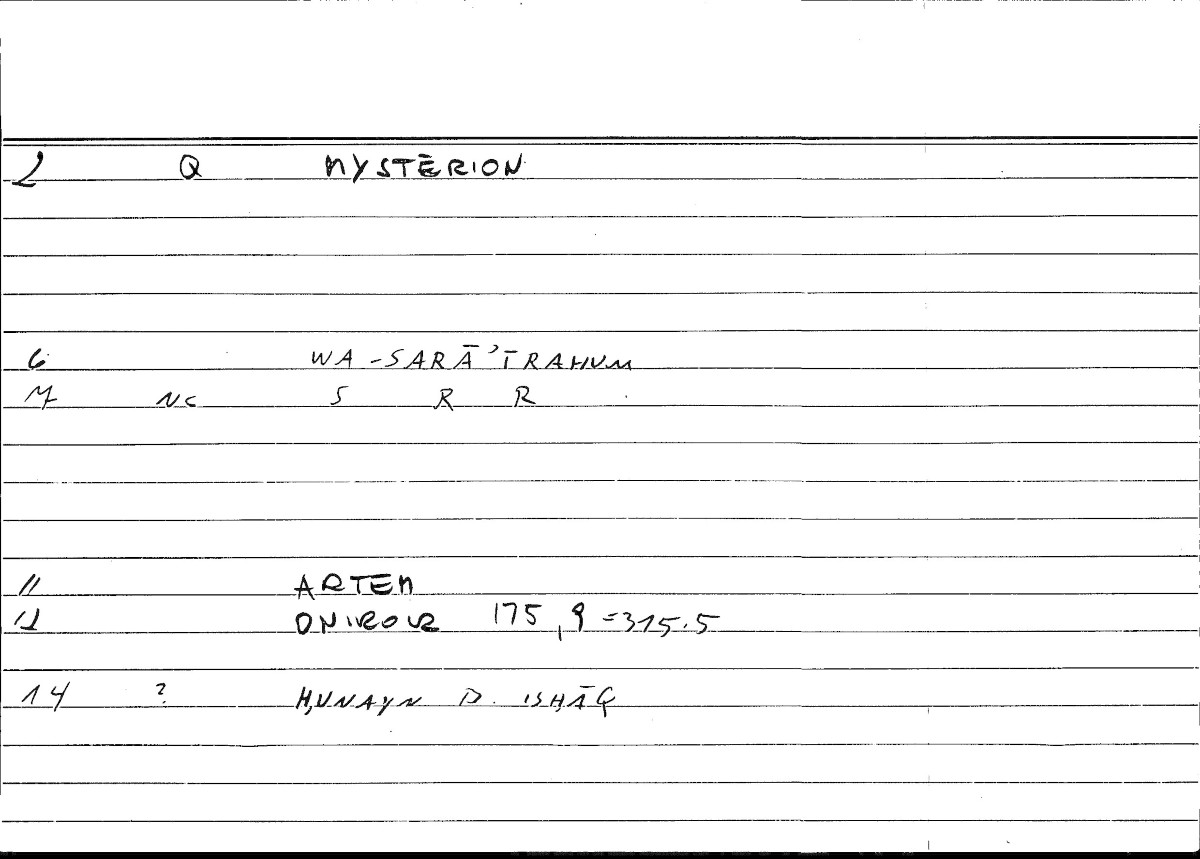 2 Q MYSTĒRION
6 WA-SARĀ'IRAHUM
7 NC S R R
11 ARTEM
12 ONIROCR 175,9=315.5
14 ? ḤUNAYN B. ISḤĀQ